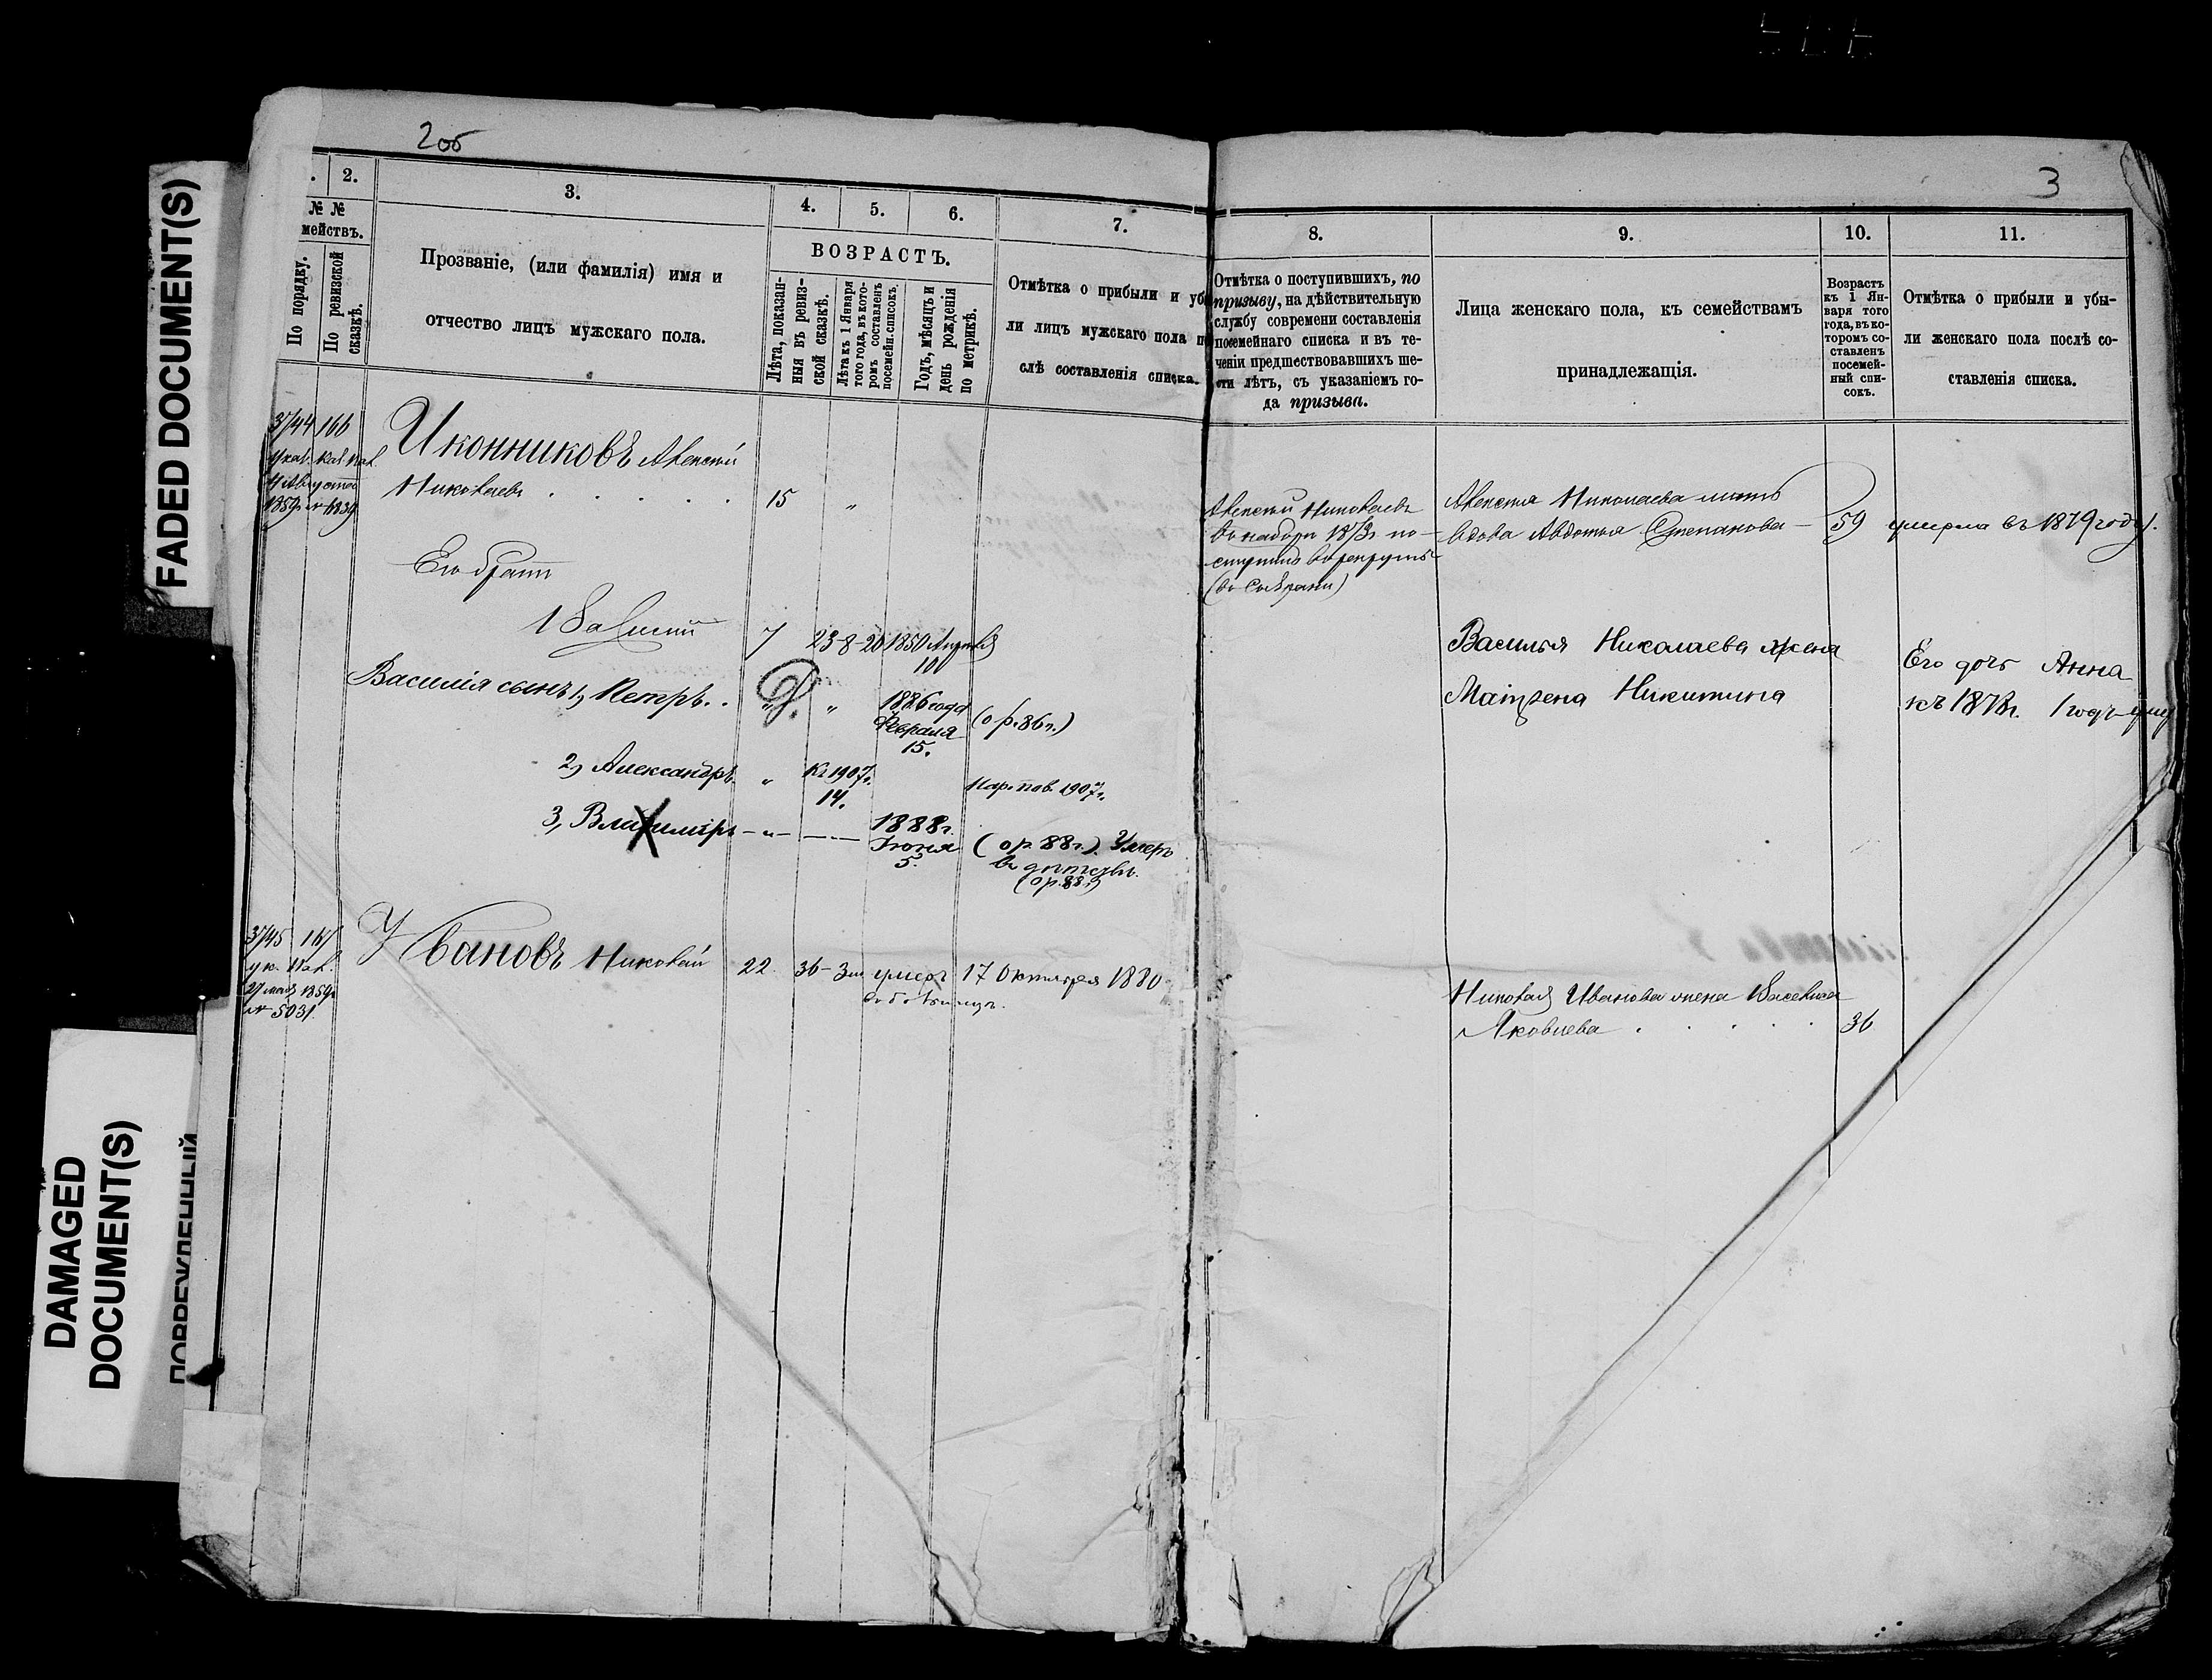 FADED DOCUMENT(S)
DAMAGED
DOCUMENT(S)
2об
3
2.
3.
4.
5.
6.
7.
8.
9.
10.
11.
№ №
мействъ.
По порядку.
По ревизской
сказкѣ.
Прозваніе, (или фамилія) имя и
отчество лицъ мужскаго пола.
ВОЗРАСТЪ.
Лѣта, показан-
ныя въ ревиз-
ской сказкѣ.
Лѣта къ 1 Января
того года, въ кото-
ромъ составленъ
посемейн. списокъ.
Годъ, мѣсяцъ и
день рожденія
по метрикѣ.
Отмѣтка о прибыли и убы
ли лицъ мужскаго пола п
слѣ составленія списка.
Отмѣтка о поступившихъ, по
призыву, на дѣйствительную
службу современи составленія
посемейнаго списка и въ те-
ченіи предшествовавшихъ ше-
сти лѣтъ, съ указаніемъ го-
да призыва.
Лица женскаго пола, къ семействамъ
принадлежащія.
Возрастъ
къ 1 Ян-
варя того
года, въ ко-
торомъ со-
ставленъ
посемей-
ный спи-
сокъ.
Отмѣтка о прибыли и убы-
ли женскаго пола послѣ со-
ставленія списка.
3744 166
Иконниковъ Алексѣй
Николаевъ 15 „
Алексѣй Николаевъ
въ наборъ 1873г по-
ступилъ въ рекруты
Алексѣя Николаева мать
вдова Авдотья Степанова — 59 умерла въ 1879 году.
Его братъ
Василій 7 23-8-20 1850 Апрѣля
10
Василія сынъ 1, Петръ. „ „ 1886 года
Февраля
15.
(о р. 86 г.)
Василья Николаева жена
Матрена Никитина
Его дочь Анна
къ 1878г. 1 годъ
2, Александръ. „ Къ 1907г.
14.
1907г.
3, Владиміръ — „ — — 1888г.
Іюня
5.
(о р. 88 г.) Умеръ
въ дѣтствѣ.
(о р. 88 г.)
3745 167
27 мая 1859г
№ 5031.
Ивановъ Николай 22 36 — умеръ 17 Октября 1880
Николая Иванова жена Василиса
Яковлева 36